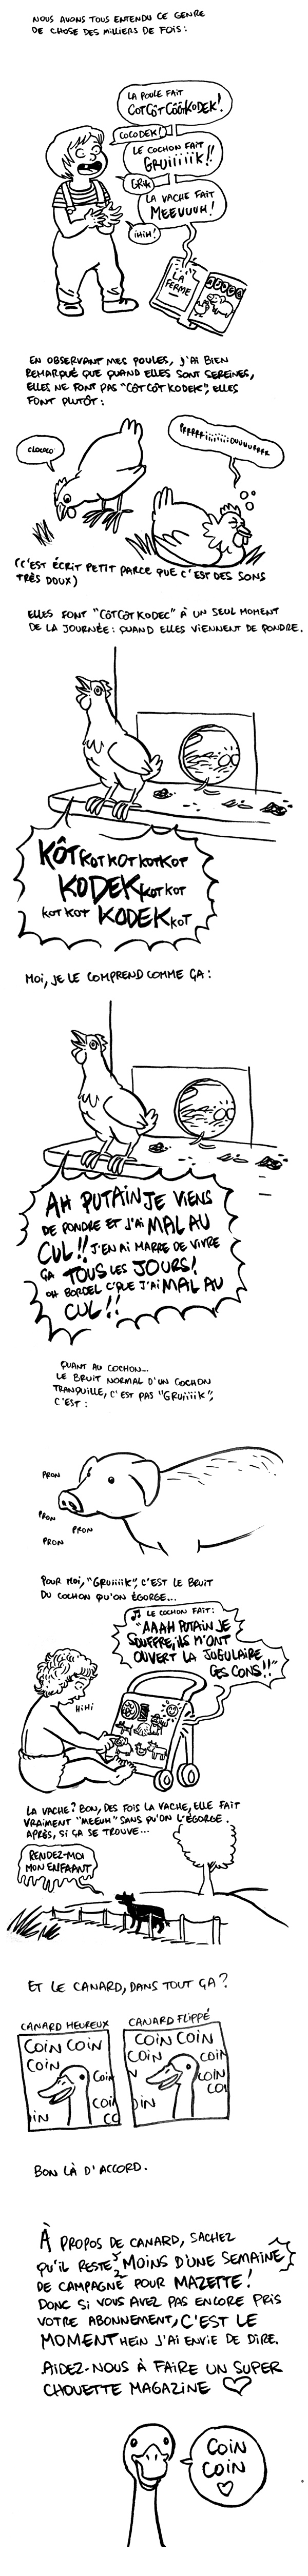 NOUS AVONS TOUS ENTENDU CE GENRE
DE CHOSE DES MILLIERS DE FOIS :
LA POULE FAIT
CÔTCÔTCÔÔTKODEK!
COCODEK
LE COCHON FAIT
GRUiiiiiK!!
GRIK
LA VACHE FAIT
MEEUUUH!
iHiH!
LA
FERME
EN OBSERVANT MES POULES, J'AI BIEN
REMARQUÉ QUE QUAND ELLES SONT SEREINES,
ELLES NE FONT PAS "CÔTCÔT KODEK", ELLES
FONT PLUTÔT :
CLOCOCO
(C'EST ÉCRIT PETIT PARCE QUE C'EST DES SONS
TRÈS DOUX)
ELLES FONT "CÔTCÔTKODEC" À UN SEUL MOMENT
DE LA JOURNÉE : QUAND ELLES VIENNENT DE PONDRE.
KÔTKOTKOTKOTKOT
KODEKKOTKOT
KOT KOT KODEKKOT
MOI, JE LE COMPREND COMME ÇA :
AH PUTAIN JE VIENS
DE PONDRE ET J'AI MAL AU
CUL!! J'EN AI MARRE DE VIVRE
ÇA TOUS LES JOURS!
OH BORDEL C'QUE J'AI MAL AU
CUL!!
QUANT AU COCHON...
LE BRUIT NORMAL D'UN COCHON
TRANQUILLE, C'EST PAS "GRUiiiiK",
C'EST :
PRON
PRON
PRON
PRON
POUR MOI, "GRUiiiiK", C'EST LE BRUIT
DU COCHON QU'ON ÉGORGE...
♫ LE COCHON FAIT :
"AAAH PUTAIN JE
SOUFFRE, ILS M'ONT
OUVERT LA JUGULAIRE
CES CONS!!"
HIHI
LA VACHE? BON, DES FOIS LA VACHE, ELLE FAIT
VRAIMENT "MEEUH" SANS QU'ON L'ÉGORGE.
APRÈS, SI ÇA SE TROUVE...
RENDEZ-MOI
MON ENFAANT
ET LE CANARD, DANS TOUT ÇA?
CANARD HEUREUX
COIN COIN
COIN
COIN
COIN
OIN
CO
CANARD FLIPPÉ
COIN COIN
COIN
COIN
N
COIN
COI
OIN
BON LÀ D'ACCORD.
À PROPOS DE CANARD, SACHEZ
QU'IL RESTE MOINS D'UNE SEMAINE
DE CAMPAGNE POUR MAZETTE!
DONC SI VOUS AVEZ PAS ENCORE PRIS
VOTRE ABONNEMENT, C'EST LE
MOMENT HEIN J'AI ENVIE DE DIRE.
AIDEZ-NOUS À FAIRE UN SUPER
CHOUETTE MAGAZINE ♡
COIN
COIN
♡